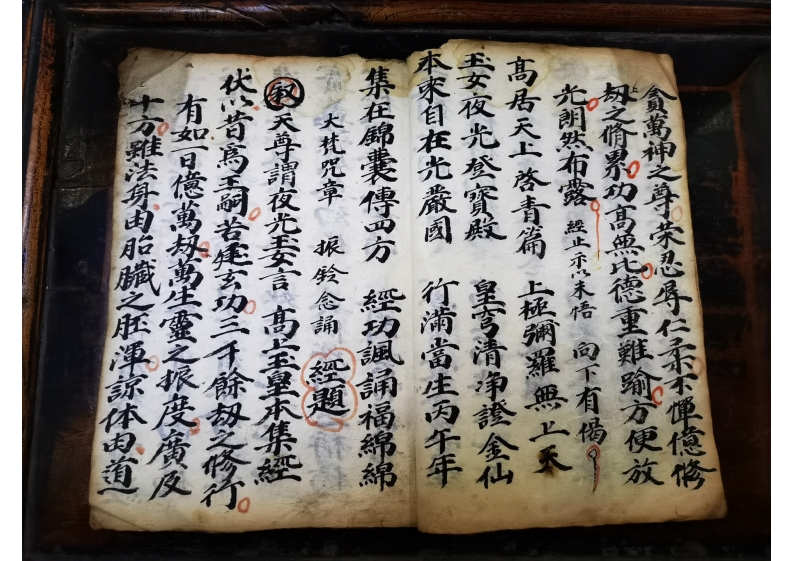 貪萬神之尊荣忍辱仁柔不憚億修
劫之脩累功髙無比德重難踰方便放
光朗然布露 經止示以未悟 向下有偈
髙居天上啓青篇 上極彌羅無上天
玉女夜光登寳殿 皇宫清净證金仙
本來自在光嚴國 行滿當生丙午年
集在錦囊傳四方 經功諷誦福綿綿
大梵咒章 振鈴念誦 經題
叙天尊謂夜光玉女言 髙上玉皇本集經
伏以昔爲王嗣若玄功三千餘劫之修行
有如一日億萬劫萬生靈之振度廣及
十方雖法身由胎臓之胚渾諒体由道